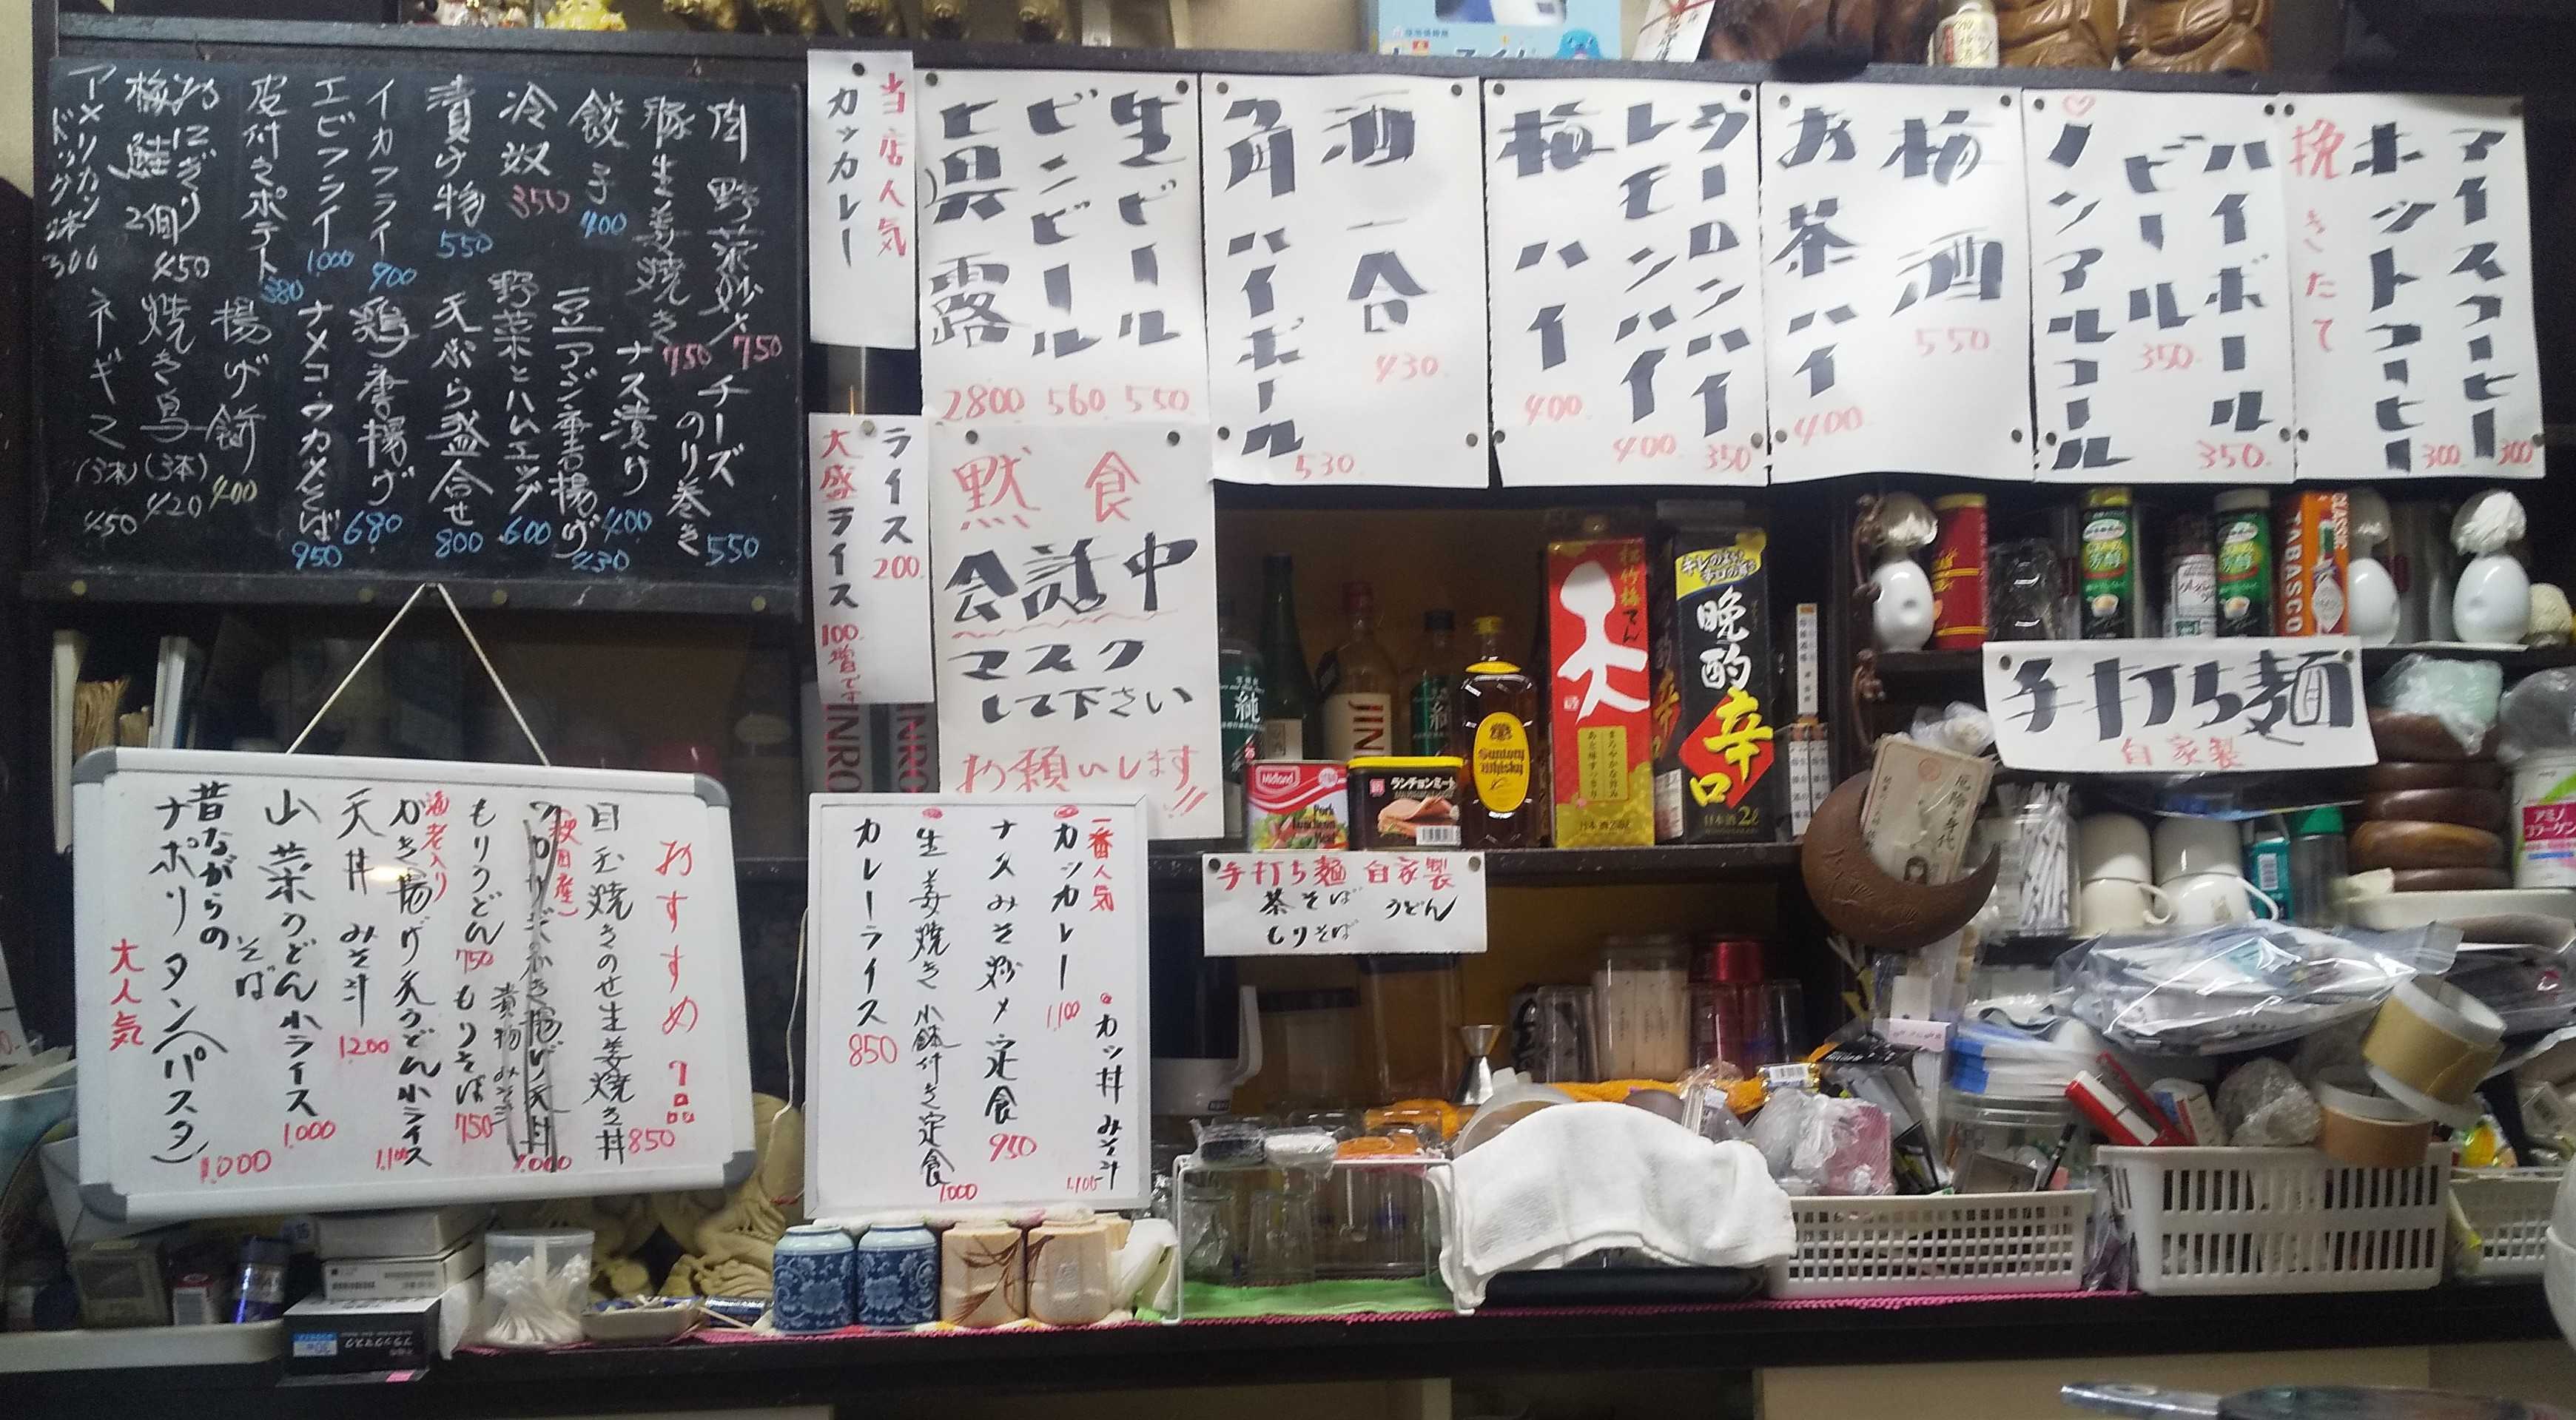 肉野菜炒メ 750
豚生姜焼き 750
餃子 400
冷奴 350
漬け物 550
イカフライ 900
エビフライ 1,000
皮付きポテト 380
おにぎり
梅 鮭 2個 450
アメリカンドック2本 300
チーズのり巻き 550
ナス漬け 400
豆アジ唐揚げ 430
野菜とハムエッグ 600
天ぷら盛合せ 800
鶏唐揚げ 680
ナメコ・ワカメそば 950
揚げ餅 400
焼き鳥(3本) 420
ネギマ(3本) 450
当店人気
カツカレー
ライス 200
大盛ライス 100増です
生ビール 550
ビンビール 560
二異露 2800
酒一合 430
角ハイボール 530
ウーロンハイ 350
レモンハイ 400
梅ハイ 400
梅酒 550
お茶ハイ 400
ハイボール 350
ビール 350
ノンアルコール
アイスコーヒー 300
ホットコーヒー 300
挽きたて
黙食
会話中
マスク
して下さい
お願いします!!
手打ち麺
自家製
手打ち麺 自家製
茶そば うどん
もりそば
おすすめ 7品
目玉焼きのせ生姜焼き丼 850
漬物 みそ汁
1,000
もりうどん 750
もりそば 750
海老入り
かき揚げ天うどん小ライス 1,100
天丼 みそ汁 1200
山菜うどん小ライス 1,000
そば
昔ながらの
ナポリタン(パスタ) 1,000
大人気
一番人気
カツカレー 1,100
カツ丼 みそ汁 1,105
ナスみそ炒メ定食 950
生姜焼き 小鉢付き定食 1,000
カレーライス 850
松竹梅
天
日本酒
キレのある辛口の旨さ
晩酌
辛口
日本酒2ℓ
Suntory
Whisky
ランチョンミート
Midland
Pork
Luncheon
Meat
純
JINRO
JINRO
CLASSIC
TABASCO
アミノ
コラーゲン
ブラックマスク